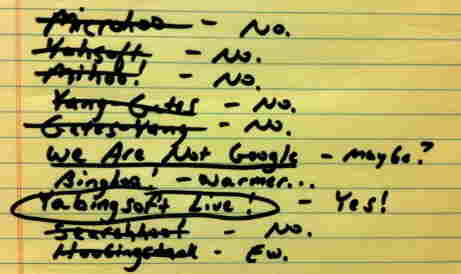 Microhoo - No.
Yahsoft - No.
Mihoo! - No.
Yang Gates - No.
Gates-Yang - No.
We Are Not Google - maybe?
Binghoo! - warmer...
Yabingsoft Live! - Yes!
Searchhoot - No.
- Ew.